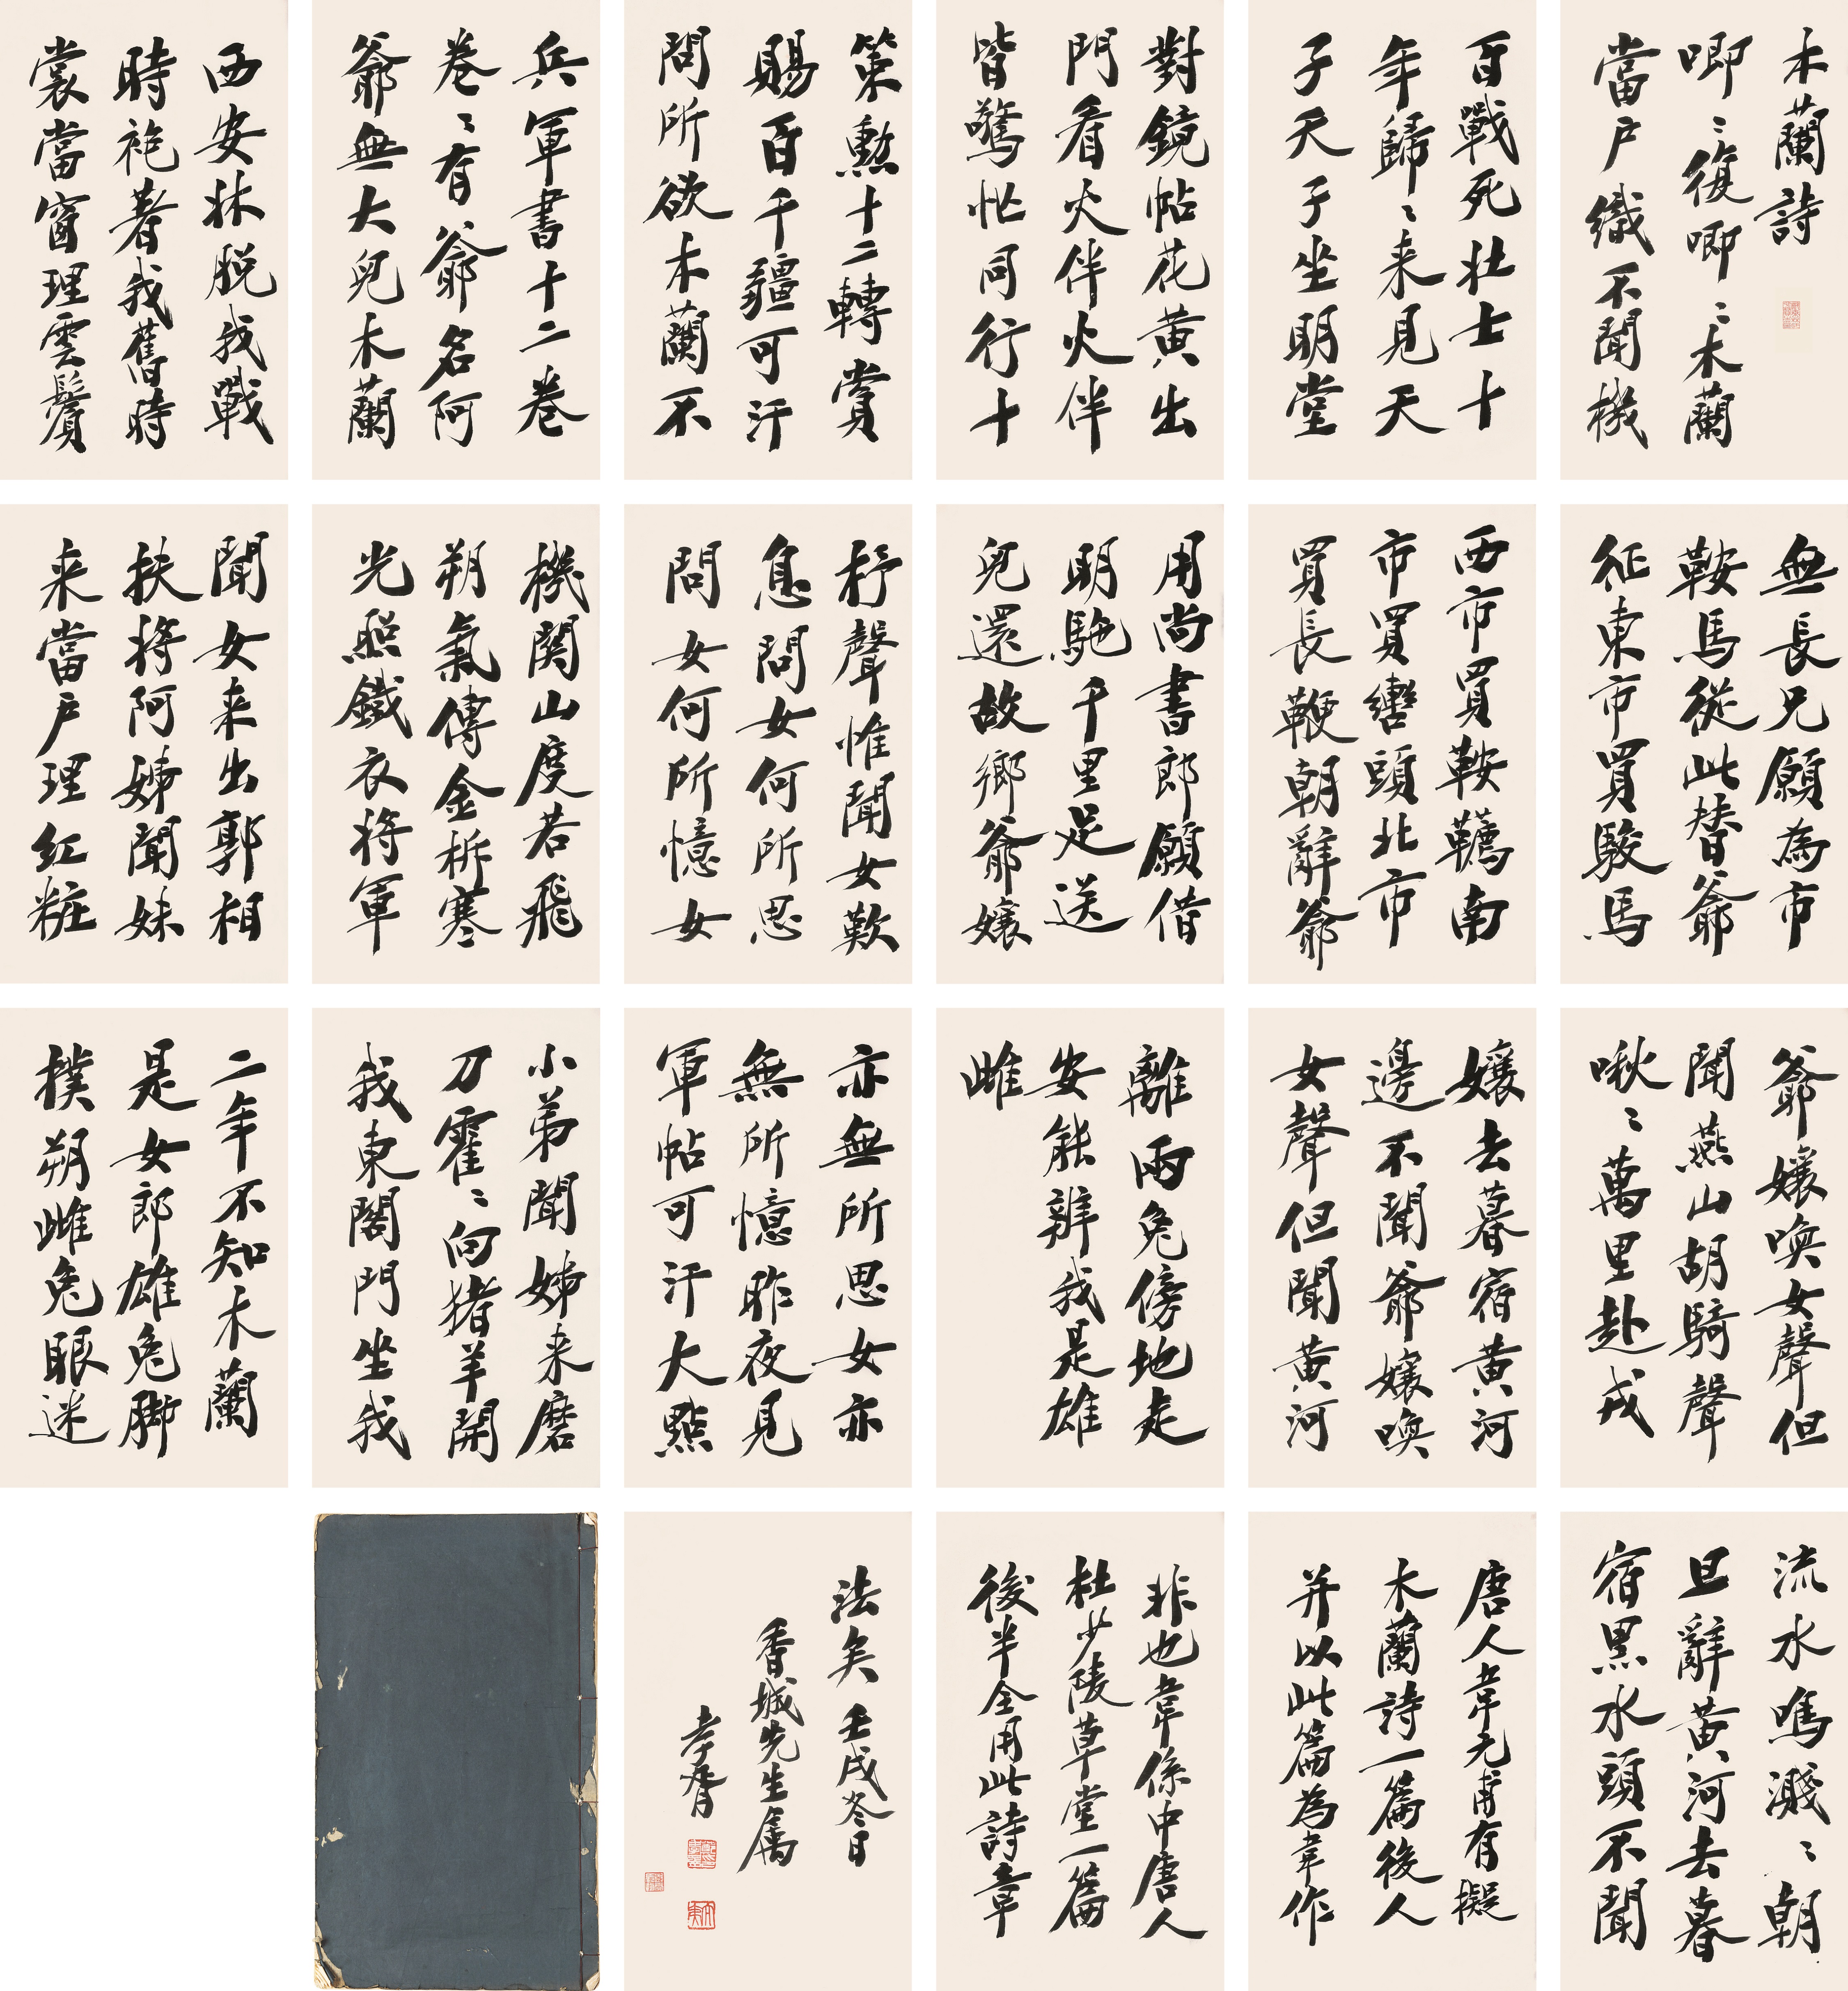 木蘭詩
唧〻復唧〻木蘭
當戶織不聞機
杼聲惟聞女歎
息問女何所思
問女何所憶女
亦無所思女亦
無所憶昨夜見
軍帖可汗大點
兵軍書十二卷
卷〻有爺名阿
爺無大兒木蘭
無長兄願為市
鞍馬從此替爺
征東市買駿馬
西市買鞍韉南
市買轡頭北市
買長鞭朝辭爺
嬢去暮宿黄河
邊不聞爺嬢喚
女聲但聞黄河
流水鳴濺〻朝
旦辭黄河去暮
宿黑水頭不聞
爺嬢喚女聲但
聞燕山胡騎聲
啾〻萬里赴戎
機關山度若飛
朔氣傳金柝寒
光照鐵衣将軍
百戰死壯士十
年歸〻来見天
子天子坐明堂
策勲十二轉賞
賜百千疆可汗
問所欲木蘭不
用尚書郎願借
明駞千里足送
兒還故鄉爺嬢
聞女来出郭相
扶将阿姊聞妹
来當戶理紅粧
小弟聞姊来磨
刀霍〻向猪羊開
我東閣門坐我
西安牀脱我戰
時袍著我舊時
裳當窗理雲鬢
對鏡帖花黄出
門看火伴火伴
皆驚忙同行十
二年不知木蘭
是女郎雄兔脚
撲朔雌兔眼迷
離兩兔傍地走
安能辨我是雄
雌
唐人韋元甫有擬
木蘭詩一篇後人
并以此篇為韋作
非也韋係中唐人
杜少陵草堂一篇
後半全用此詩章
法矣 壬戌冬日
香城先生属
孝胥